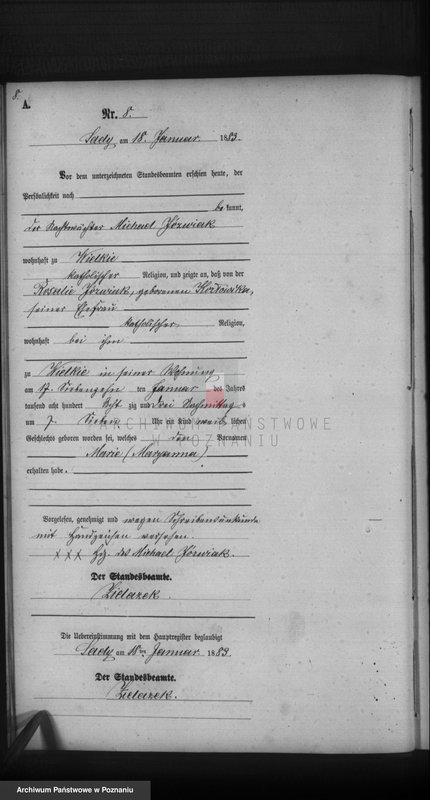 8.
A.
Nr. 8.
Sady am 18. Januar 1883.
Vor dem unterzeichneten Standesbeamten erschien heute, der
Persönlichkeit nach
be kannt,
der Nachtwächter Michael Józwiak
wohnhaft zu Wielkie
katholischer Religion, und zeigte an, daß von der
Rosalie Józwiak, geborenen
seiner Ehefrau
katholischer Religion,
wohnhaft bei ihm
zu Wielkie in seiner Wohnung
am 17. Siebenzehn ten Januar des Jahres
tausend acht hundert Acht zig und drei Nachmittag s
um 7. Sieben Uhr ein Kind weib lichen
Geschlechts geboren worden sei, welches den Vornamen
Marie (Maryanna)
erhalten habe.
Vorgelesen, genehmigt und wegen Schreibensunkunde
mit Handzeichen versehen.
x x x Hz. des Michael Józwiak.
Der Standesbeamte.
Zielazek.
Die Uebereinstimmung mit dem Hauptregister beglaubigt
Sady am 18ten Januar 1883.
Der Standesbeamte.
Zielazek.
ARCHIWUM PAŃSTWOWE
W POZNANIU
Archiwum Państwowe w Poznaniu